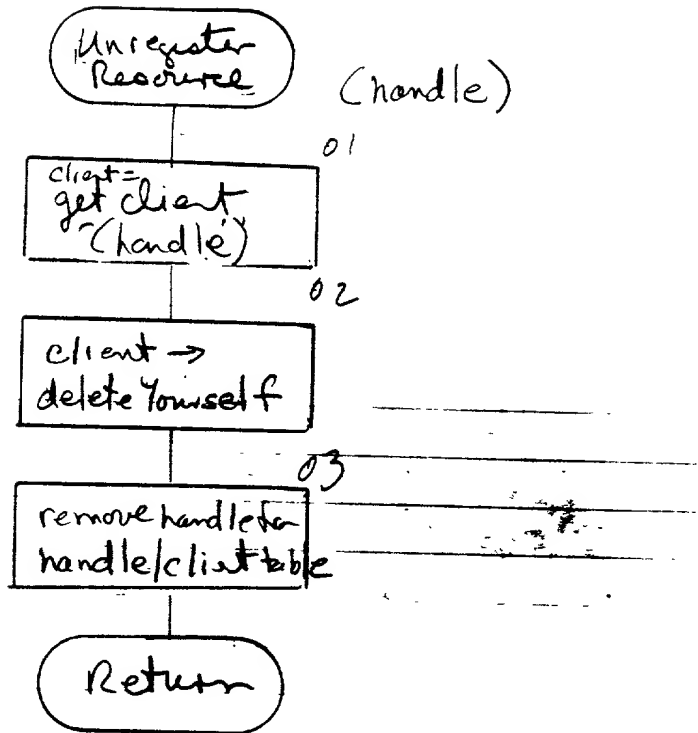 Unregister
Resource
(handle)
01
client=
get client
(handle)
02
client →
delete Yourself
03
remove handle for
handle/client table
Return